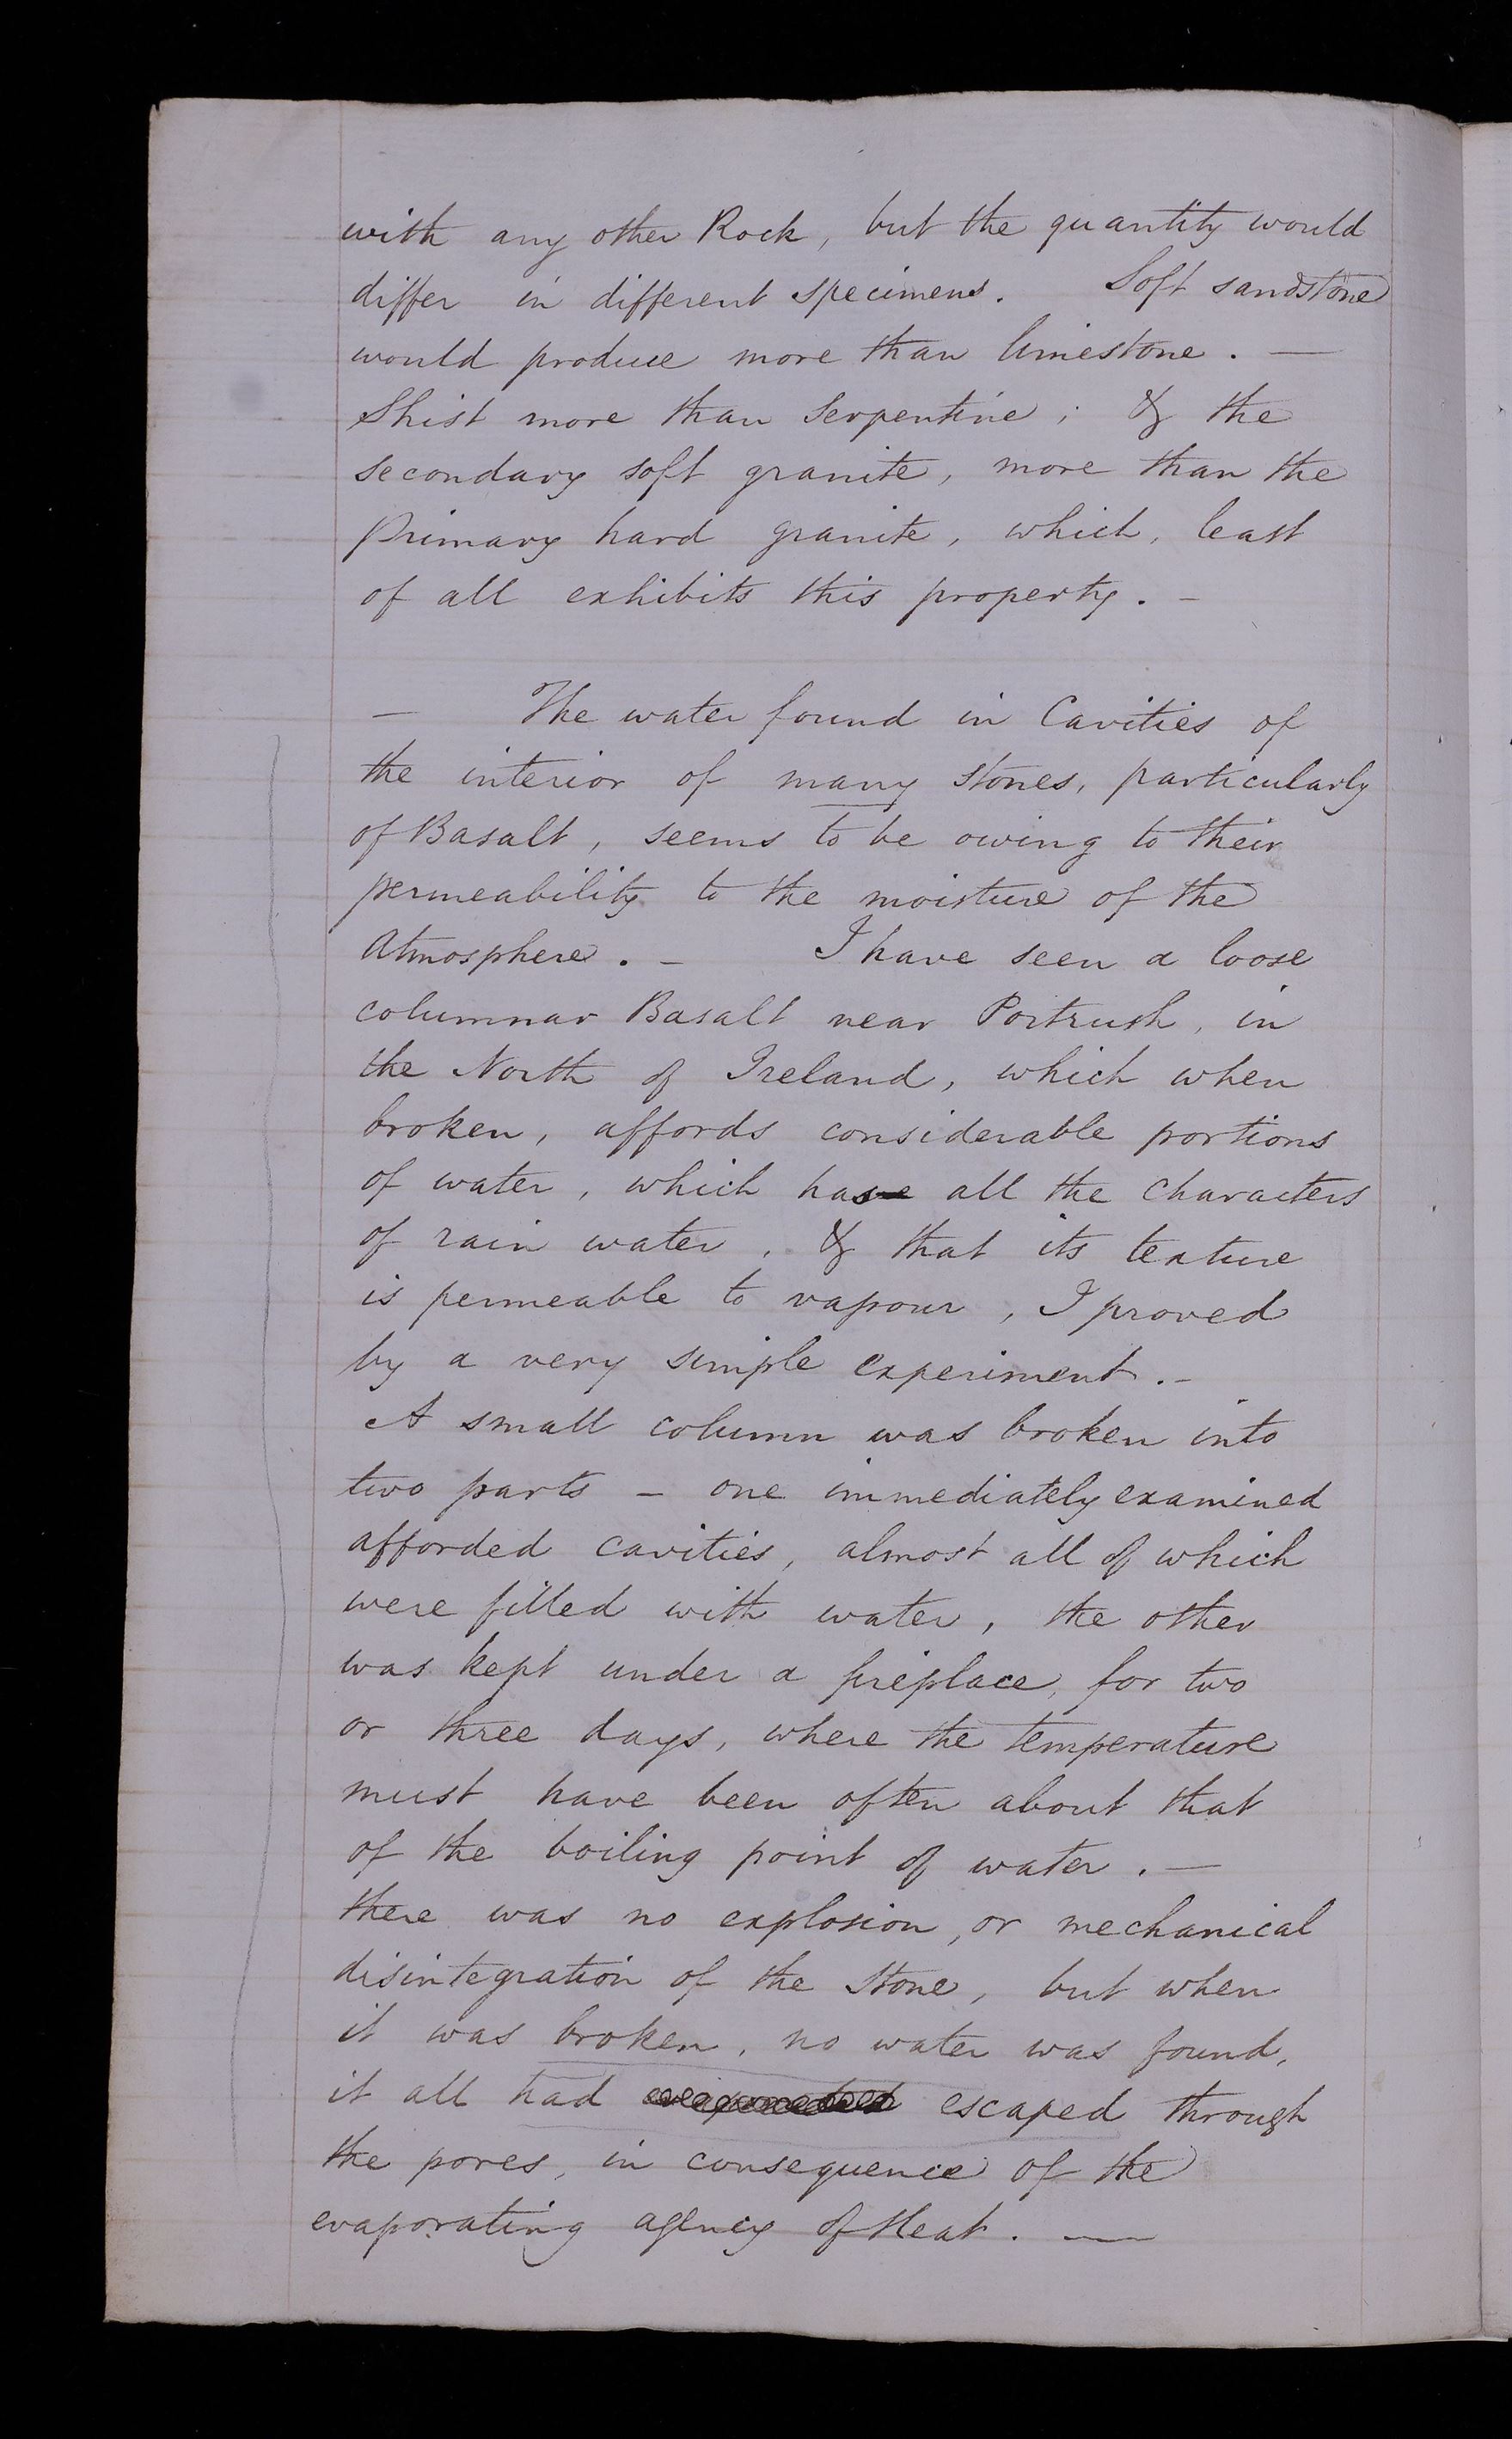 with any other Rock, but the quantity would
differ in different specimens. Soft sandstone
would produce more than limestone. —
Shist more than Serpentine; & the
secondary soft granite, more than the
Primary hard granite, which, least
of all exhibits this property. –
— The water found in Cavities of
the interior of many stones, particularly
of Basalt, seems to be owing to their
permeability to the moisture of the
Atmosphere. – I have seen a loose
columnar Basalt near Portrush, in
the North of Ireland, which when
broken, affords considerable portions
of water, which has all the characters
of rain water, & that its texture
is permeable to vapour, I proved
by a very simple experiment. –
A small column was broken into
two parts – one immediately examined
afforded cavities, almost all of which
were filled with water, the other
was kept under a fireplace, for two
or three days, where the temperature
must have been often about that
of the boiling point of water. —
there was no explosion, or mechanical
disintegration of the Stone, but when
it was broken, no water was found,
it all had escaped through
the pores, in consequence of the
evaporating agency of Heat. —